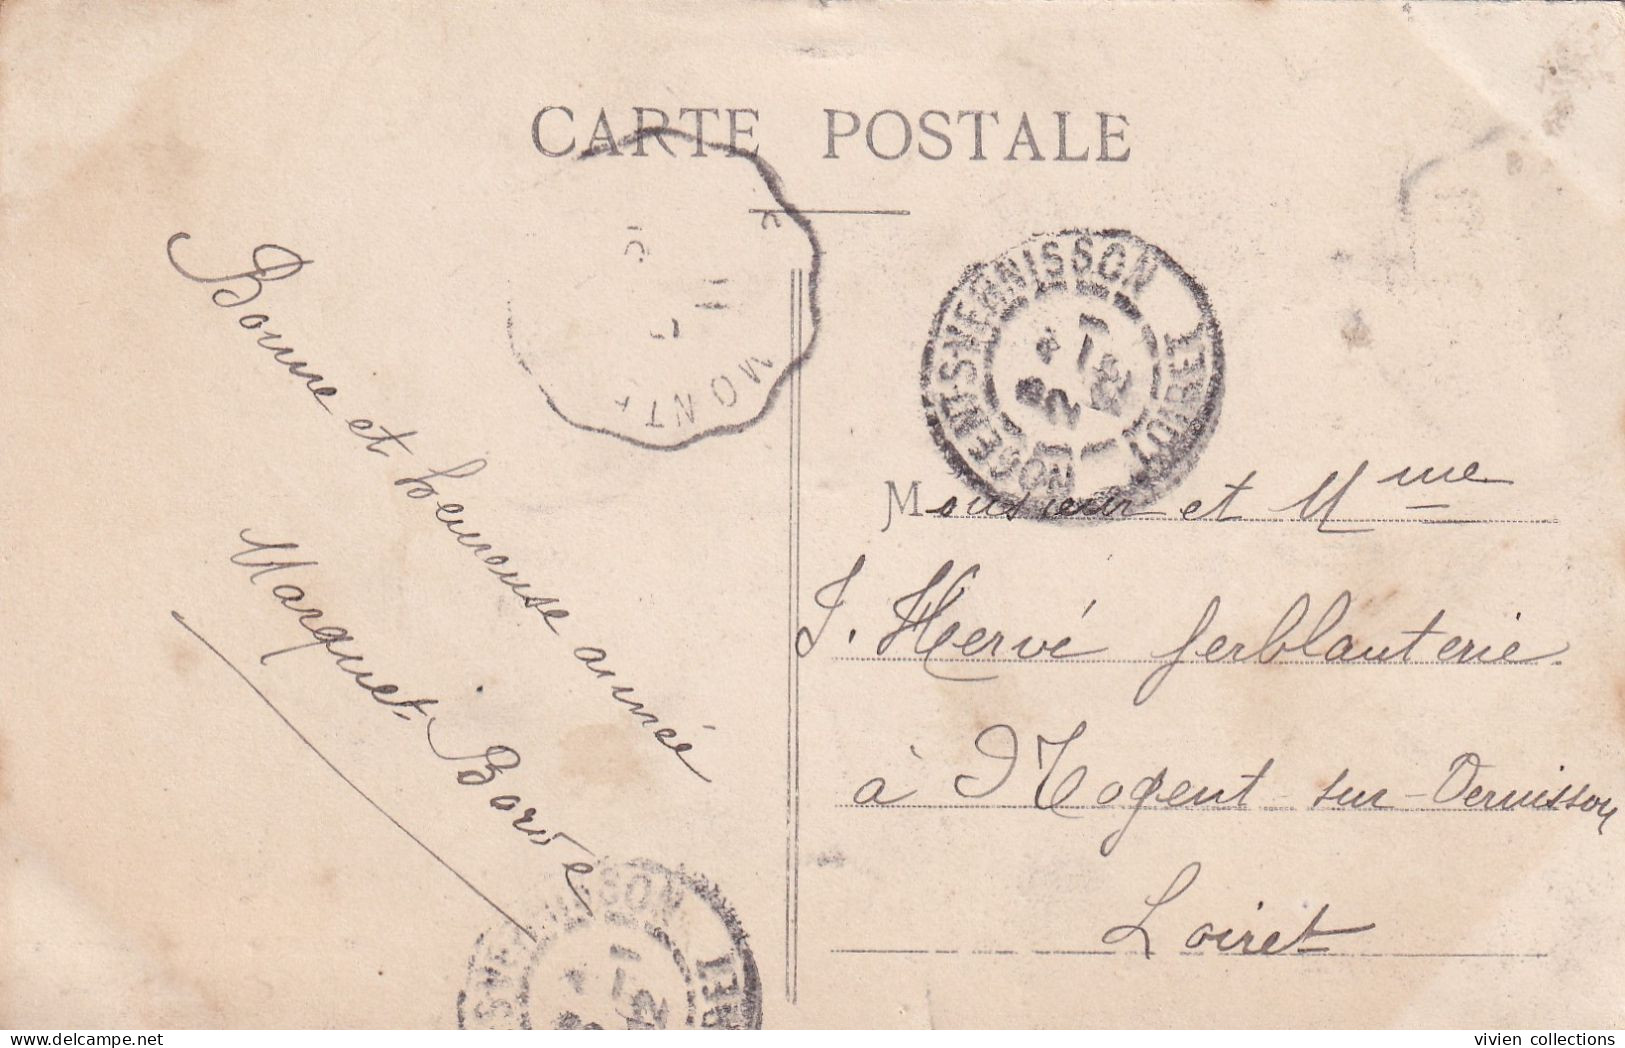 CARTE POSTALE
Bonne et heureuse année
Marquet-Barve
MONT
NOGENT-S-VERNISSON
LOIRET
Monsieur et Mme
J. Hervé ferblanterie
à Nogent-sur-Vernisson
Loiret
vivien collections